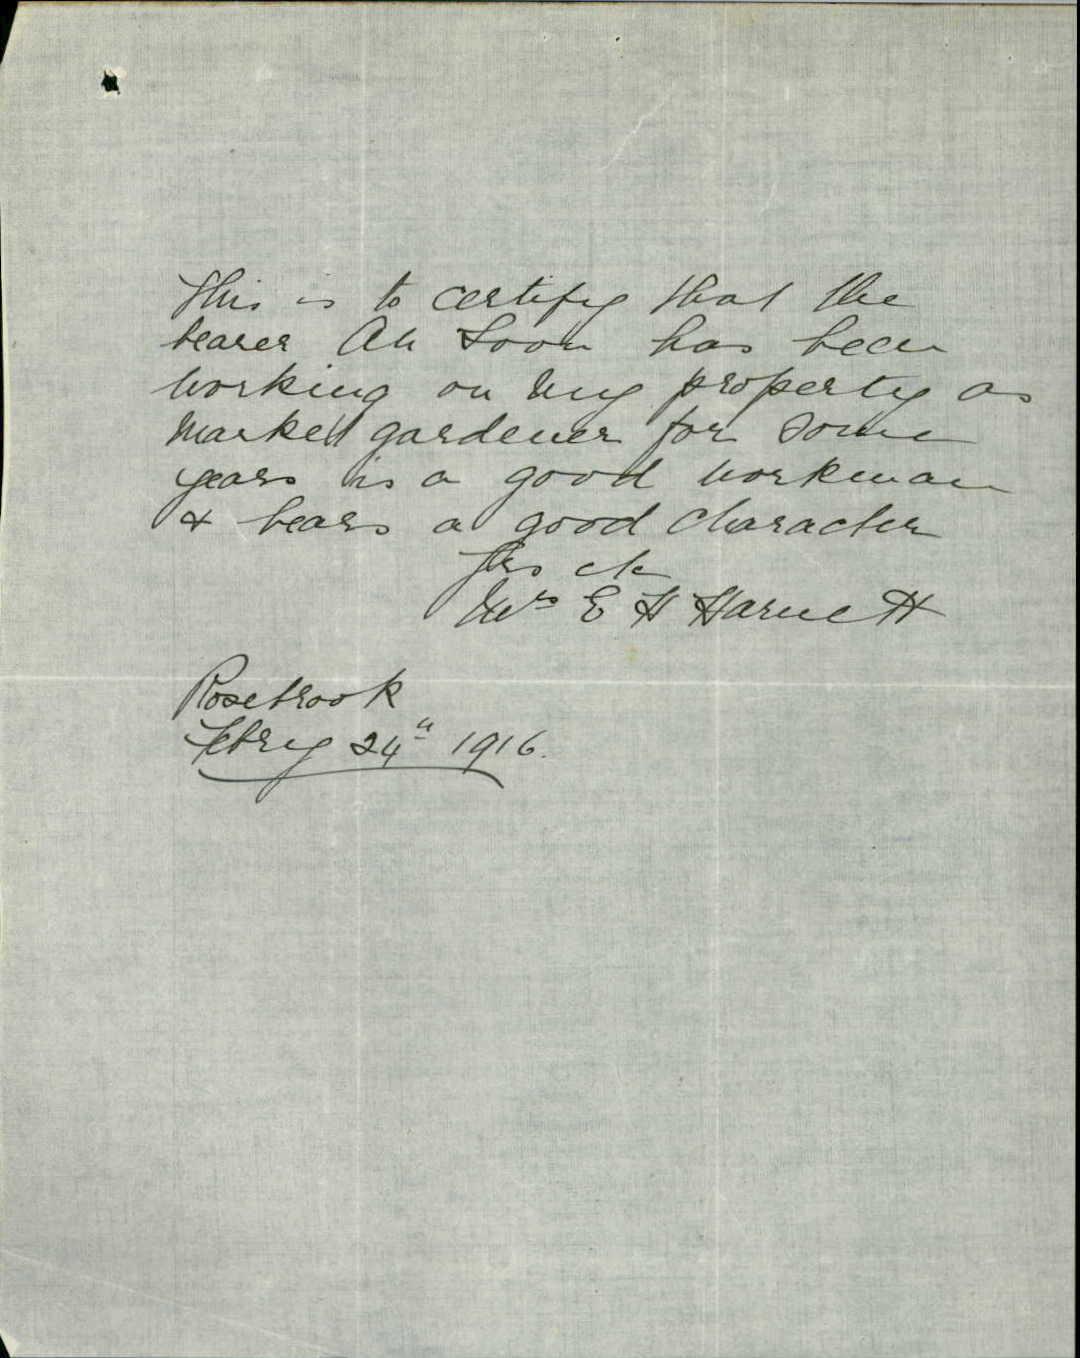 This is to certify that the
bearer Ah Soon has been
working on my property as
Market gardener for some
years is a good workman
& bears a good Character
Yrs etc
Mrs E H Harnett
Rosebrook
Febry 24th 1916.